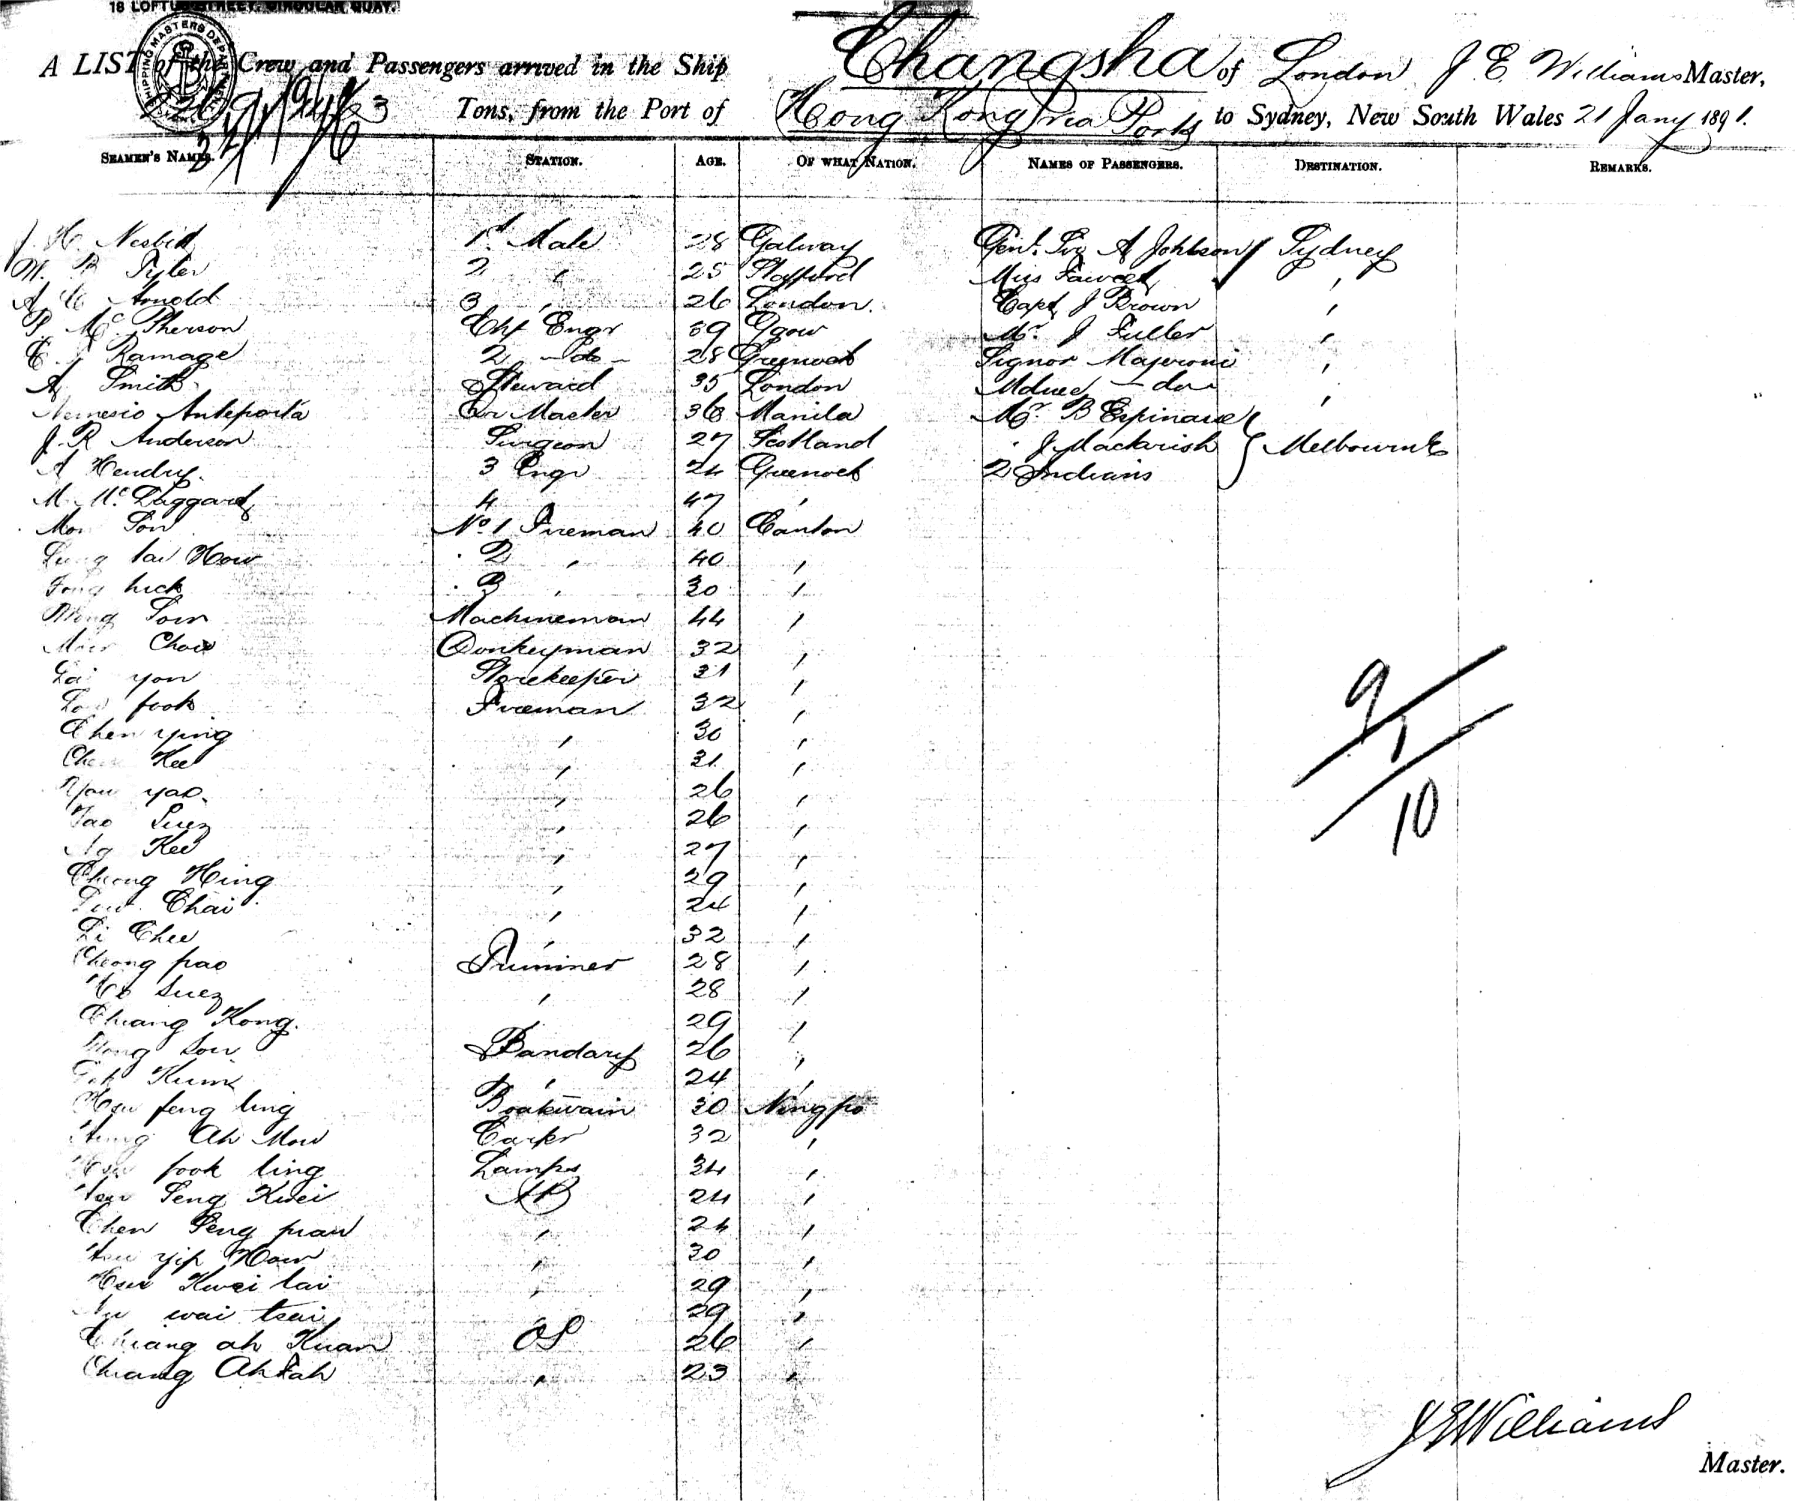 18 LOFTUS STREET, CIRCULAR QUAY.
SHIPPING MASTERS DEPARTMENT
A LIST of the Crew and Passengers arrived in the Ship Changsha of London J. E. Williams Master,
Tons, from the Port of Hong Kong via Ports to Sydney, New South Wales 21 Jany 1891.
SEAMEN'S NAMES. STATION. AGE. OF WHAT NATION. NAMES OF PASSENGERS. DESTINATION. REMARKS.
J. H. Nesbit 1st Mate 28 Galway Genl. Sir A Johnson Sydney
W. B Tyler 2 " 25 Stafford Miss Fawcet "
A C Arnold 3 " 26 London Capt J Brown "
P. McPherson Chf Engr 39 Ggow Mr. J Fuller "
C. J Ramage 2 -do- 28 Greenock Signor Majeroni "
A Smith Steward 35 London -do- "
Nemesio Anteporta Qr Master 36 Manila Mr. B Espinasse
J. R Anderson Surgeon 27 Scotland J Mackrish Melbourne
A Hendry 3 Engr 24 Greenock 2 Indians
M. Mc Daggard 4 47 "
Son No 1 Fireman 40 Canton
How 2 " 40 "
Fong hick 3 " 30 "
Wong Sow Machineman 44 "
Chow Donkeyman 32 "
Lai yon Storekeeper 31 "
fook Fireman 32 "
Chen ying " 30 "
Kee " 31 "
yao " 26 "
Tao Suez " 26 "
Kee " 27 "
Cheong Hing " 29 "
Chai " 24 "
Li Chee " 32 "
Cheong pao Trimmer 28 "
Ho Suez " 28 "
Chiang Kong. " 29 "
Wong Sow Bandary 26 "
Kum " 24 "
Hsu feng ling Boatswain 30 Ningpo
Ah Mow Carpr 32 "
Hsu fook ling Lamps 34 "
Seng Kwei AB 24 "
Chen Seng " 24 "
yip How " 30 "
Hsu Kwei lai " 29 "
wai tsai " 29 "
Chiang ah Kuan OS 26 "
Chiang Ah Fah " 23 "
9/1
10
J E Williams
Master.